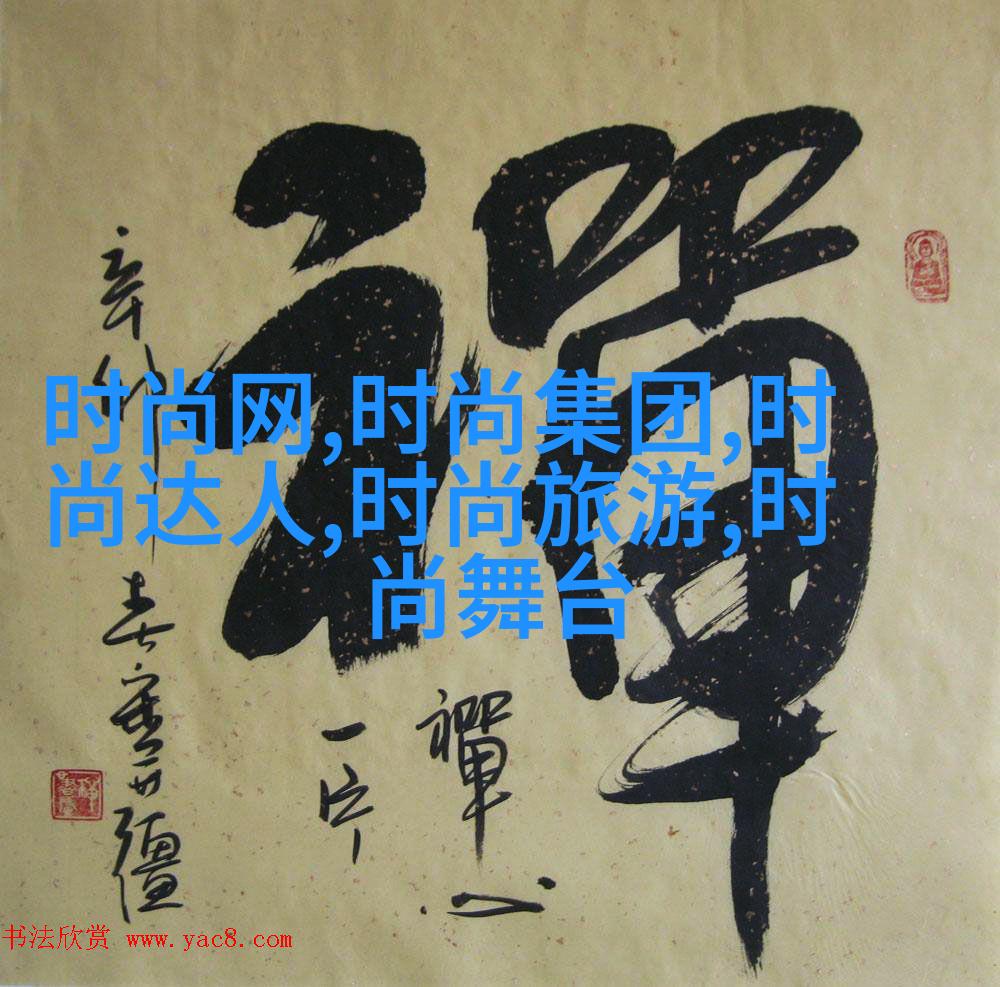 禪
禪心
一片
辛卯
春
时尚网,时尚集团,时
尚达人,时尚旅游,时
尚舞台
书法欣赏 www.yac8.com